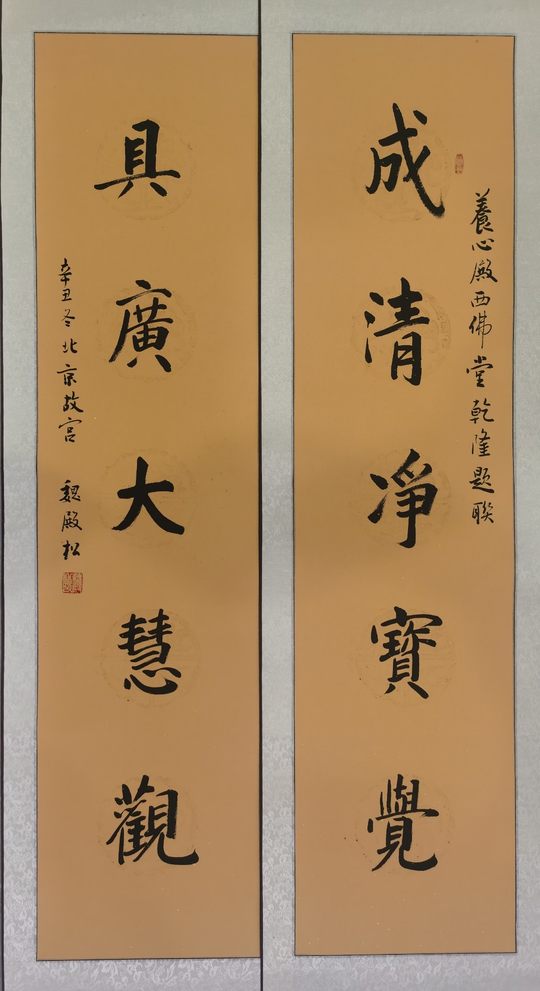 養心殿西佛堂乾隆題聯
成清淨寶覺
具廣大慧觀
辛丑冬北京故宮
魏殿松